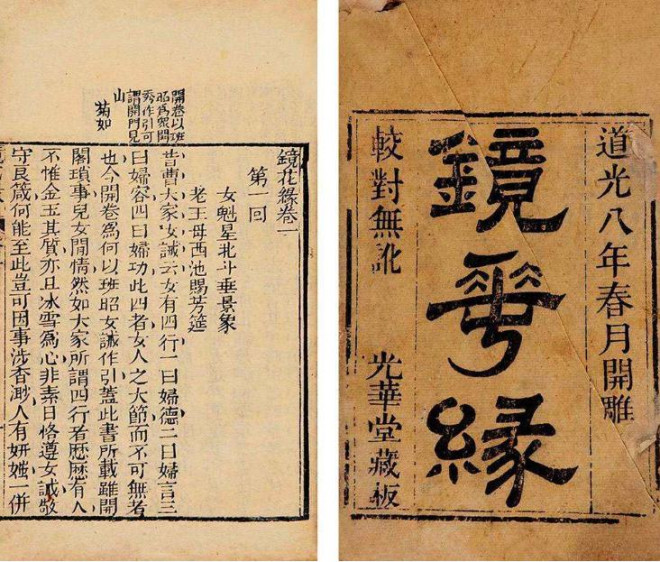 道光八年春月開雕
鏡蕐緣
較對無訛
光華堂藏板
開卷以班
昭爲衆閨
秀作引可
謂開門見
山
菊如
鏡花緣卷一
第一回
女魁星北斗垂景象
老王母西池賜芳筵
昔曹大家女誡云女有四行一曰婦德二曰婦言三
曰婦容四曰婦功此四者女人之大節而不可無者
也今開卷爲何以班昭女誡作引蓋此書所載雖閨
閣瑣事兒女閒情然如大家所謂四行者歷歷有人
不惟金玉其質亦且冰雪爲心非素日恪遵女誡敬
守良箴何能至此豈可因事涉杳渺人有妍媸一併